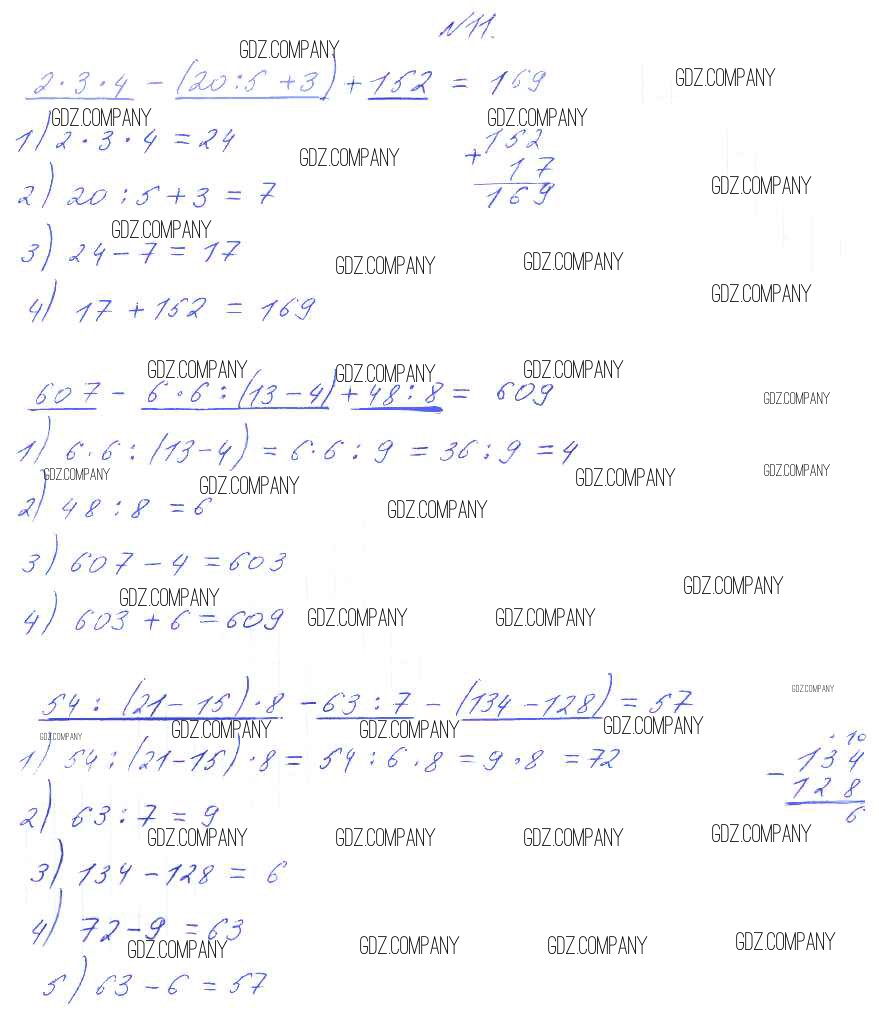 №11.
GDZ.COMPANY
2·3·4 - (20:5 +3) + 152 = 169
GDZ.COMPANY
GDZ.COMPANY GDZ.COMPANY
1) 2·3·4 = 24
+152
17
169
GDZ.COMPANY
2) 20:5+3 = 7
GDZ.COMPANY
GDZ.COMPANY
3) 24-7 = 17
GDZ.COMPANY GDZ.COMPANY
4) 17 + 152 = 169
GDZ.COMPANY
GDZ.COMPANY GDZ.COMPANY GDZ.COMPANY
607 - 6·6:(13-4)+48:8 = 609
GDZ.COMPANY
1) 6·6:(13-4) = 6·6:9 = 36:9 = 4
GDZ.COMPANY GDZ.COMPANY GDZ.COMPANY GDZ.COMPANY
2) 48:8 = 6
GDZ.COMPANY
3) 607-4 = 603
GDZ.COMPANY
GDZ.COMPANY
4) 603 + 6 = 609
GDZ.COMPANY GDZ.COMPANY
54:(21-15)·8 - 63:7 - (134-128) = 57
GDZ.COMPANY
GDZ.COMPANY GDZ.COMPANY GDZ.COMPANY GDZ.COMPANY
1) 54:(21-15)·8 = 54:6·8 = 9·8 = 72
· 10
- 134
128
6
2) 63:7 = 9
GDZ.COMPANY GDZ.COMPANY GDZ.COMPANY GDZ.COMPANY
3) 134-128 = 6
4) 72-9 = 63
GDZ.COMPANY GDZ.COMPANY GDZ.COMPANY GDZ.COMPANY
5) 63-6 = 57